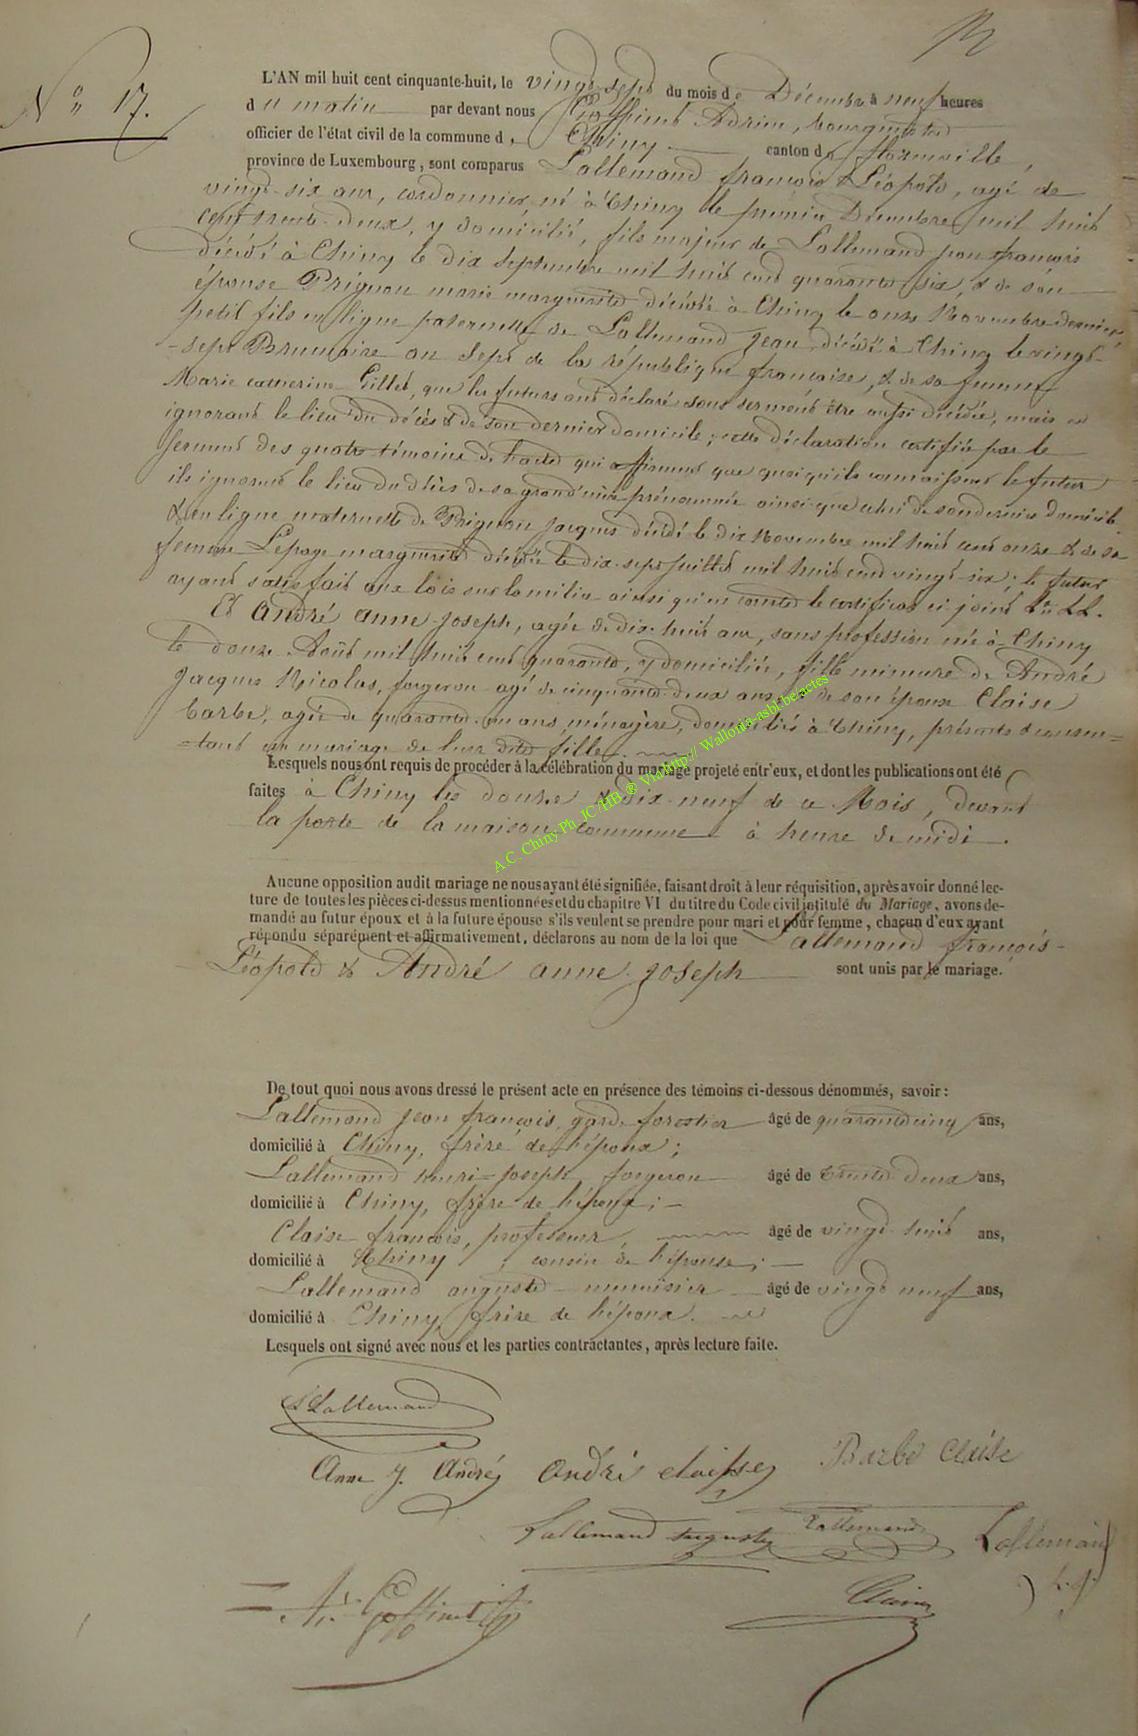 N° 17.
L'AN mil huit cent cinquante-huit, le vingt sept du mois de Décembre à neuf heures
du matin par devant nous Goffinet Adrien, bourgmestre
officier de l'état civil de la commune de Chiny canton de florenville,
province de Luxembourg, sont comparus Lallemand françois Léopold, agé de
vingt-six ans, cordonnier né à Chiny le premier Décembre mil huit
cent trente-deux, y domicilié, fils majeur de Lallemand jean françois
décédé à Chiny le dix septembre mil huit cent quarante six, & de son
épouse Prignon marie marguerite décédée à Chiny le onze Novembre dernier
petit fils en ligne paternelle de Lallemand Jean décédé à Chiny le vingt-
-sept Brumaire an Sept de la république française, & de sa femme
Marie catherine Gillet, que les futurs ont déclaré sous serment être aussi décédée, mais en
ignorant le lieu du décès & de son dernier domicile; cette déclaration certifiée par le
serment des quatre témoins de l'acte qui affirment que quoiqu'ils connaissent le futur
ils ignorent le lieu du décès de sa grand'mère prénommée ainsi que celui de son dernier domicile
& en ligne maternelle de Prignon Jacques décédé le dix Novembre mil huit cent onze & de sa
femme Lepage marguerite décédée le dix-sept juillet mil huit cent vingt-six; le futur
ayant satisfait aux lois sur la milice ainsi qu'en conste le certificat ci-joint
Et André anne joseph, agée de dix-huit ans, sans profession née à Chiny
le douze Août mil huit cent quarante, y domiciliée, fille mineure de André
Jacques Nicolas, forgeron agé de cinquante-deux ans, & de son épouse Claise
barbe, agée de quarante un ans, ménagère, domiciliés à Chiny, présents & consen=
=tant au mariage de leur dite fille.
Lesquels nous ont requis de procéder à la célébration du mariage projeté entr'eux, et dont les publications ont été
faites à Chiny les douze & dix-neuf de ce Mois, devant
la porte de la maison commune à heure de midi.
A.C. Chiny Ph. JC/HB ® Via http:// Wallonia-asbl.be/actes
Aucune opposition audit mariage ne nous ayant été signifiée, faisant droit à leur réquisition, après avoir donné lec-
ture de toutes les pièces ci-dessus mentionnées et du chapitre VI du titre du Code civil intitulé du Mariage, avons de-
mandé au futur époux et à la future épouse s'ils veulent se prendre pour mari et pour femme, chacun d'eux ayant
répondu séparément et affirmativement, déclarons au nom de la loi que Lallemand françois-
Léopold & André anne joseph sont unis par le mariage.
De tout quoi nous avons dressé le présent acte en présence des témoins ci-dessous dénommés, savoir:
Lallemand jean françois, garde forestier âgé de quarante cinq ans,
domicilié à Chiny, frère de l'époux;
Lallemand henri-joseph forgeron âgé de trente deux ans,
domicilié à Chiny, frère de l'époux;
Claise françois, professeur, âgé de vingt huit ans,
domicilié à Chiny, cousin de l'épouse;
Lallemand auguste menuisier âgé de vingt neuf ans,
domicilié à Chiny, frère de l'époux.
Lesquels ont signé avec nous et les parties contractantes, après lecture faite.
Lallemand
Anne J. André André Barbe Claise
Lallemand Auguste Lallemand Lallemand
Ad. Goffinet Claise